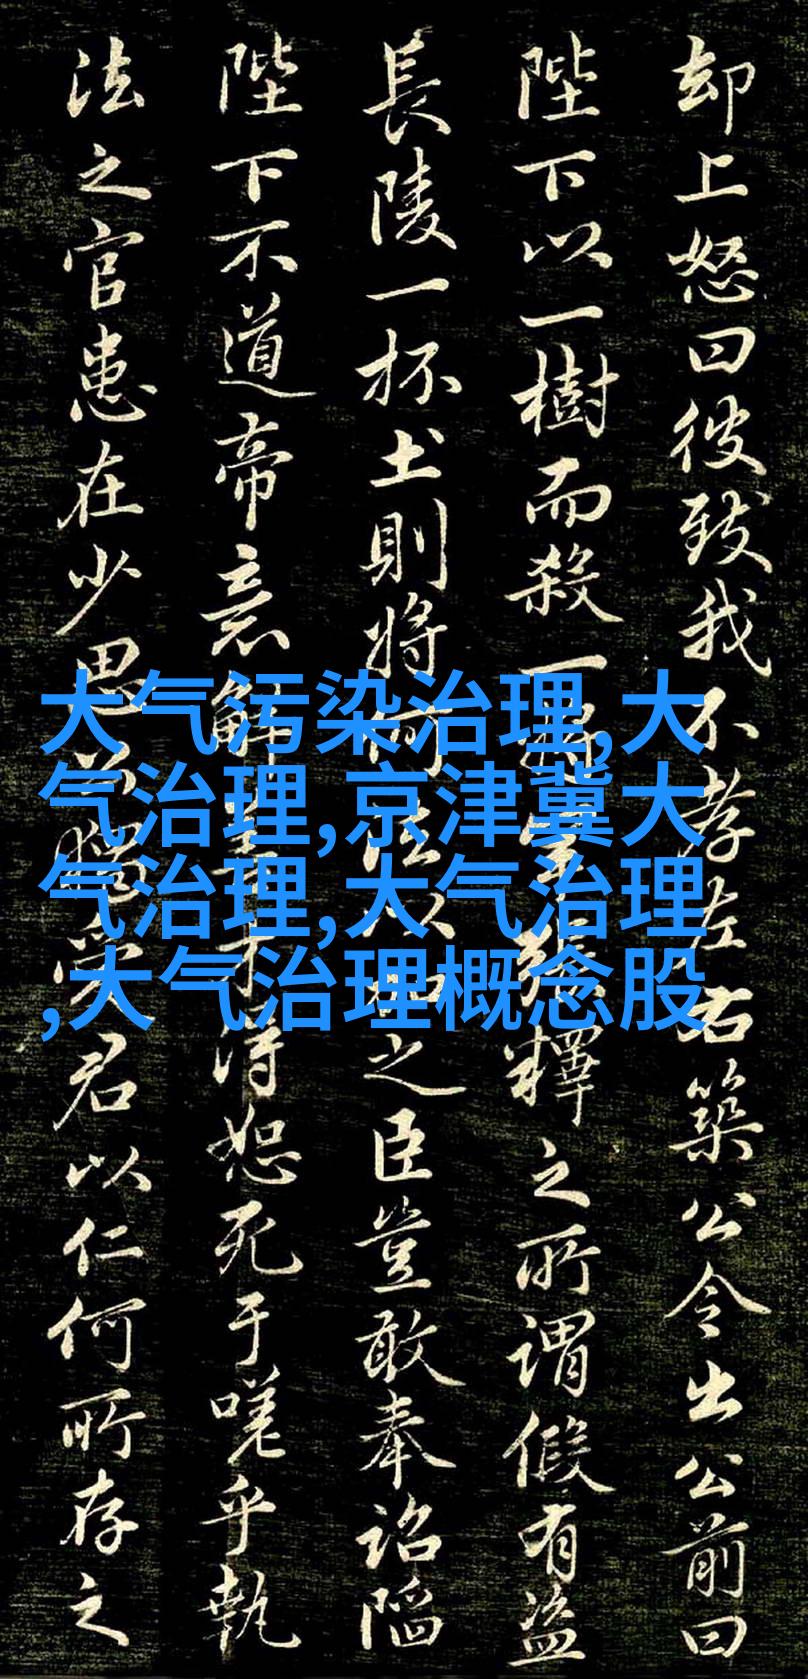 大气污染治理,大
气治理,京津冀大
气治理,大气治理
,大气治理概念股
却上怒曰彼致我不孝左右築公令出公前曰
陛下以一樹而殺一釋之所謂假有盜
長陵一杯土則將何以之臣豈敢奉詔陷
陛下不道帝意解得恕死于嗟乎執
法之官患在少思受君以仁何所存之